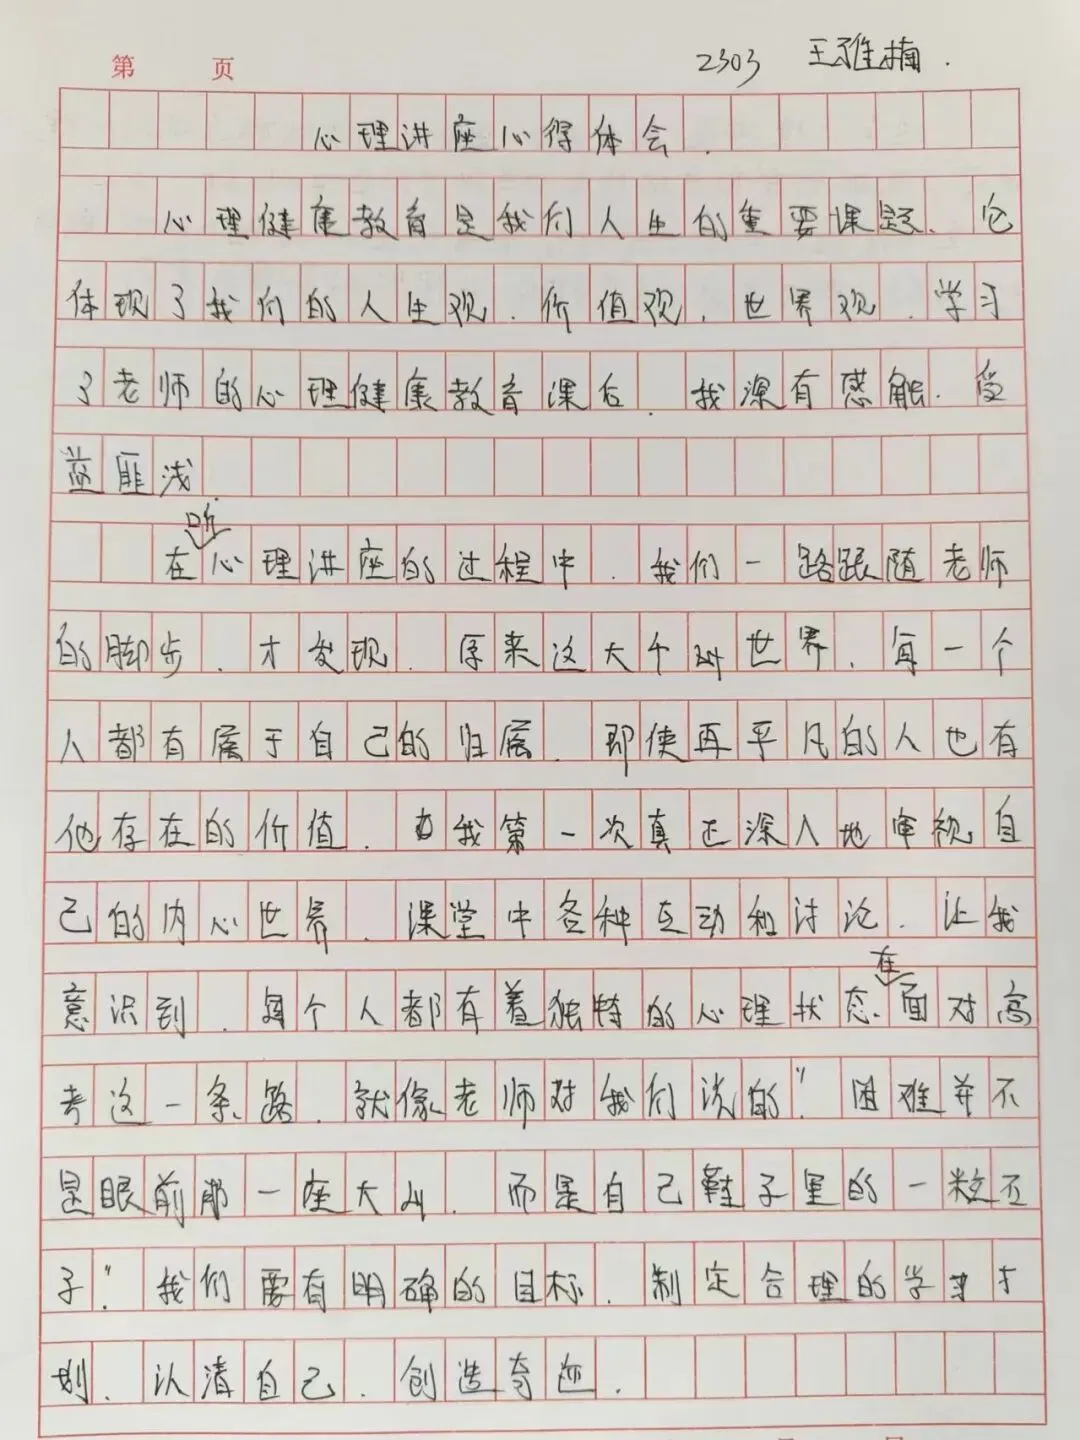 第 页 2303 王雅楠.
心理讲座心得体会.
心理健康教育是我们人生的重要课题、它
体现了我们的人生观、价值观、世界观.学习
了老师的心理健康教育课后.我深有感触.受
益匪浅.
在听心理讲座的过程中.我们一路跟随老师
的脚步.才发现.原来这大千世界.每一个
人都有属于自己的归属.即使再平凡的人也有
他存在的价值.我第一次真正深入地审视自
己的内心世界.课堂中各种互动和讨论.让我
意识到.每个人都有着独特的心理状态.在面对高
考这一条路.就像老师对我们说的“困难并不
是眼前那一座大山.而是自己鞋子里的一粒石
子”我们要有明确的目标.制定合理的学习计
划.认清自己.创造奇迹.